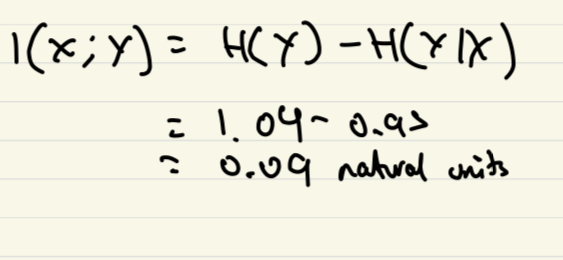 I(X;Y) = H(Y) - H(Y|X)
= 1.04 - 0.95
= 0.09 natural units